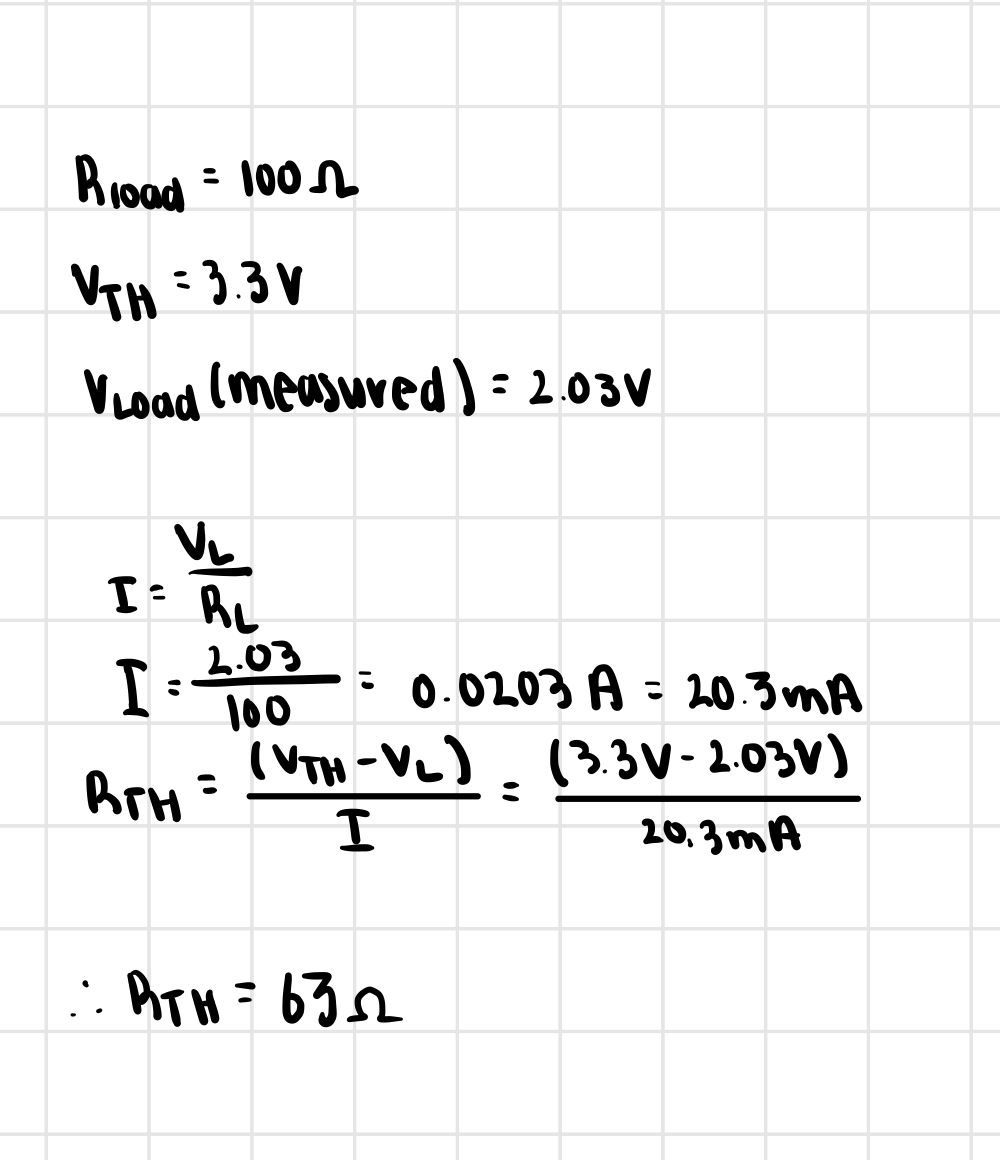 R_load = 100 Ω
V_TH = 3.3 V
V_Load (measured) = 2.03V
I = V_L / R_L
I = 2.03 / 100 = 0.0203 A = 20.3mA
R_TH = (V_TH - V_L) / I = (3.3V - 2.03V) / 20.3mA
∴ R_TH = 63 Ω